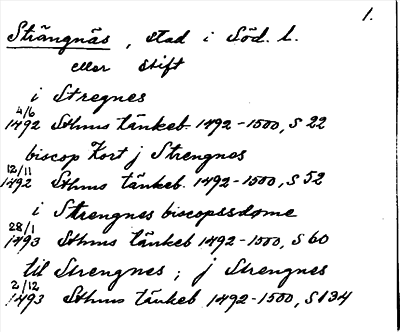 1.
Strängnäs, stad i Söd. l.
eller stift
i Stregnes
4/6
1492 Sthms tänkeb. 1492-1500, S 22
biscop Kort j Strengnes
12/11
1492 Sthms tänkeb. 1492-1500, S 52
i Strengnes biscopssdome
28/1
1493 Sthms tänkeb 1492-1500, S 60
til Strengnes; j Strengnes
2/12
1493 Sthms tänkeb 1492-1500, S 134